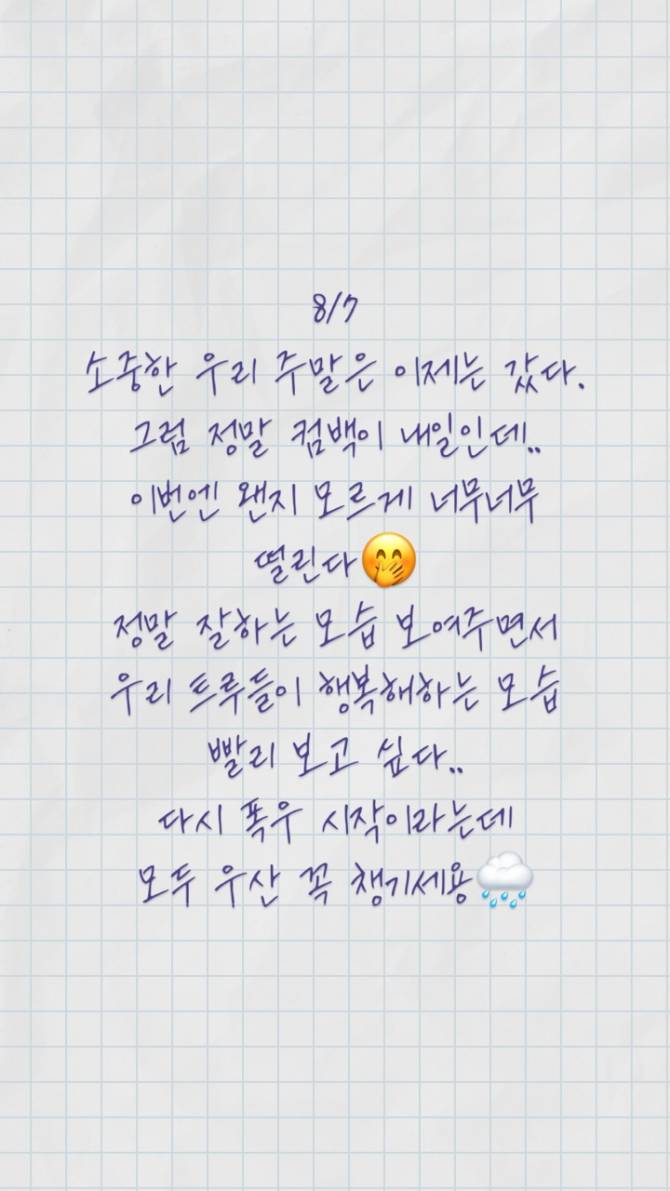 8/7
소중한 우리 주말은 이제는 갔다.
그럼 정말 컴백이 내일인데..
이번엔 왠지 모르게 너무너무
떨린다🤭
정말 잘하는 모습 보여주면서
우리 트루들이 행복해하는 모습
빨리 보고 싶다..
다시 폭우 시작이라는데
모두 우산 꼭 챙기세용🌧️